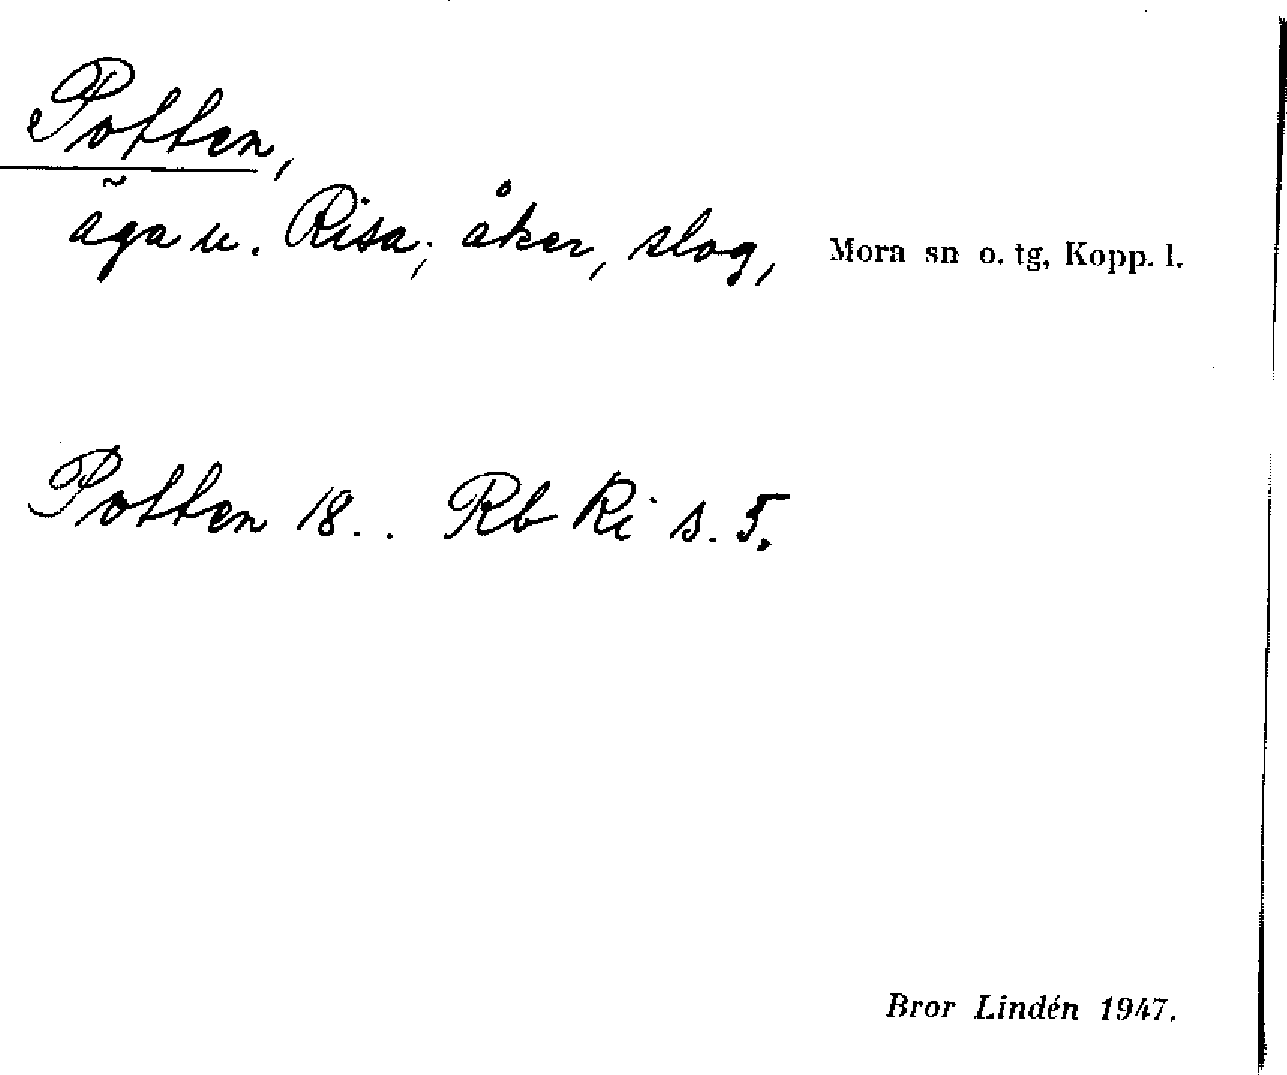 Potten,
äga u. Risa; åker, slog, Mora sn o. tg, Kopp. l.
Potten 18.. Rb Ri s. 5.
Bror Lindén 1947.